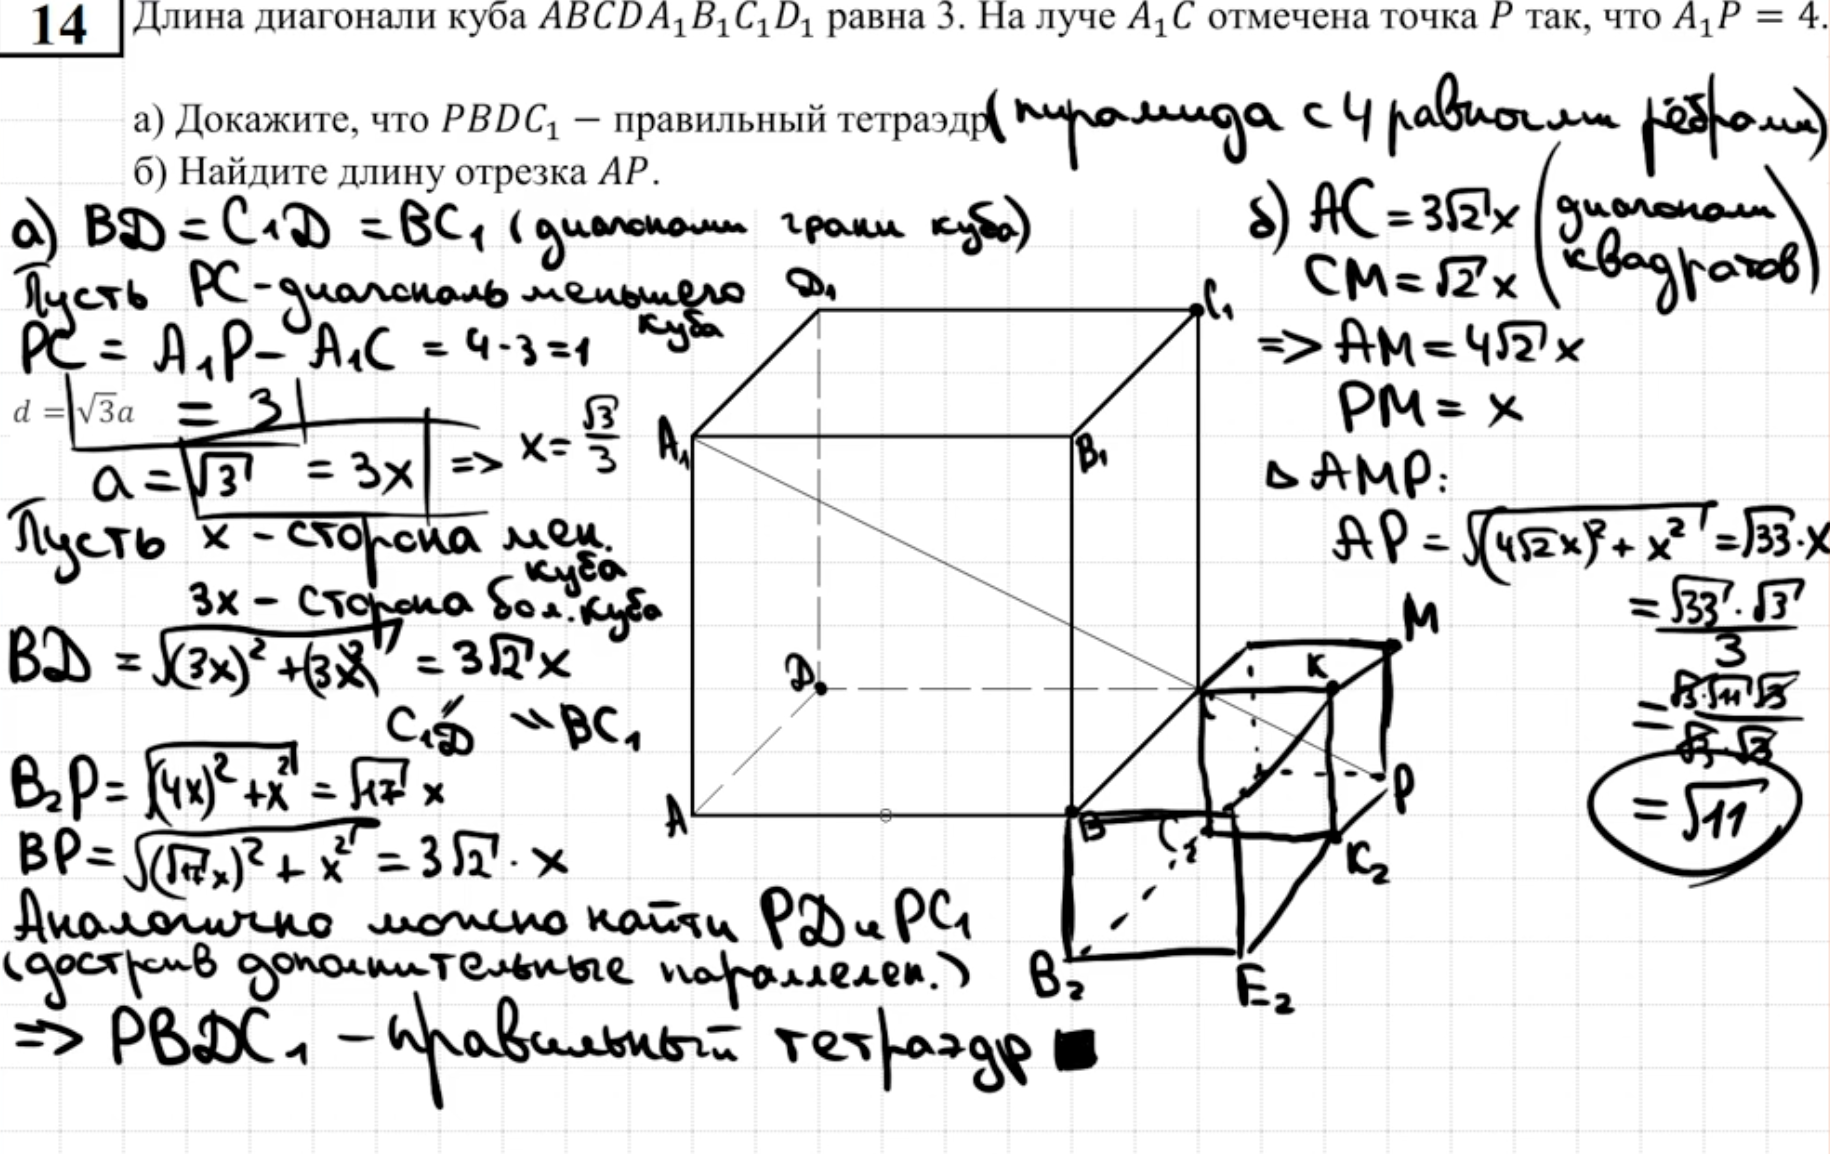 14
Длина диагонали куба ABCDA₁B₁C₁D₁ равна 3. На луче A₁C отмечена точка P так, что A₁P = 4.
а) Докажите, что PBDC₁ – правильный тетраэдр (пирамида с 4 равными рёбрами)
б) Найдите длину отрезка AP.
а) BD = C₁D = BC₁ (диагонали грани куба)
Пусть PC - диагональ меньшего куба
PC = A₁P - A₁C = 4 - 3 = 1
d = √3a = 3
a = √3 = 3x => x = √3/3
Пусть x - сторона мен. куба
3x - сторона бол. куба
BD = √((3x)² + (3x)²) = 3√2 x
C₁D = BC₁
B₂P = √((4x)² + x²) = √17 x
BP = √((√17 x)² + x²) = 3√2 · x
Аналогично можно найти PD и PC₁
(достроив дополнительные параллелеп.)
=> PBDC₁ - правильный тетраэдр ■
D₁
C₁
A₁
B₁
D
A
B
C
K
M
P
K₂
B₂
E₂
б) AC = 3√2 x (диагонали квадратов)
CM = √2 x
=> AM = 4√2 x
PM = x
△AMP:
AP = √((4√2x)² + x²) = √33 · x
= √33 · √3 / 3
= √3 · √11 · √3 / √3 · √3
= √11